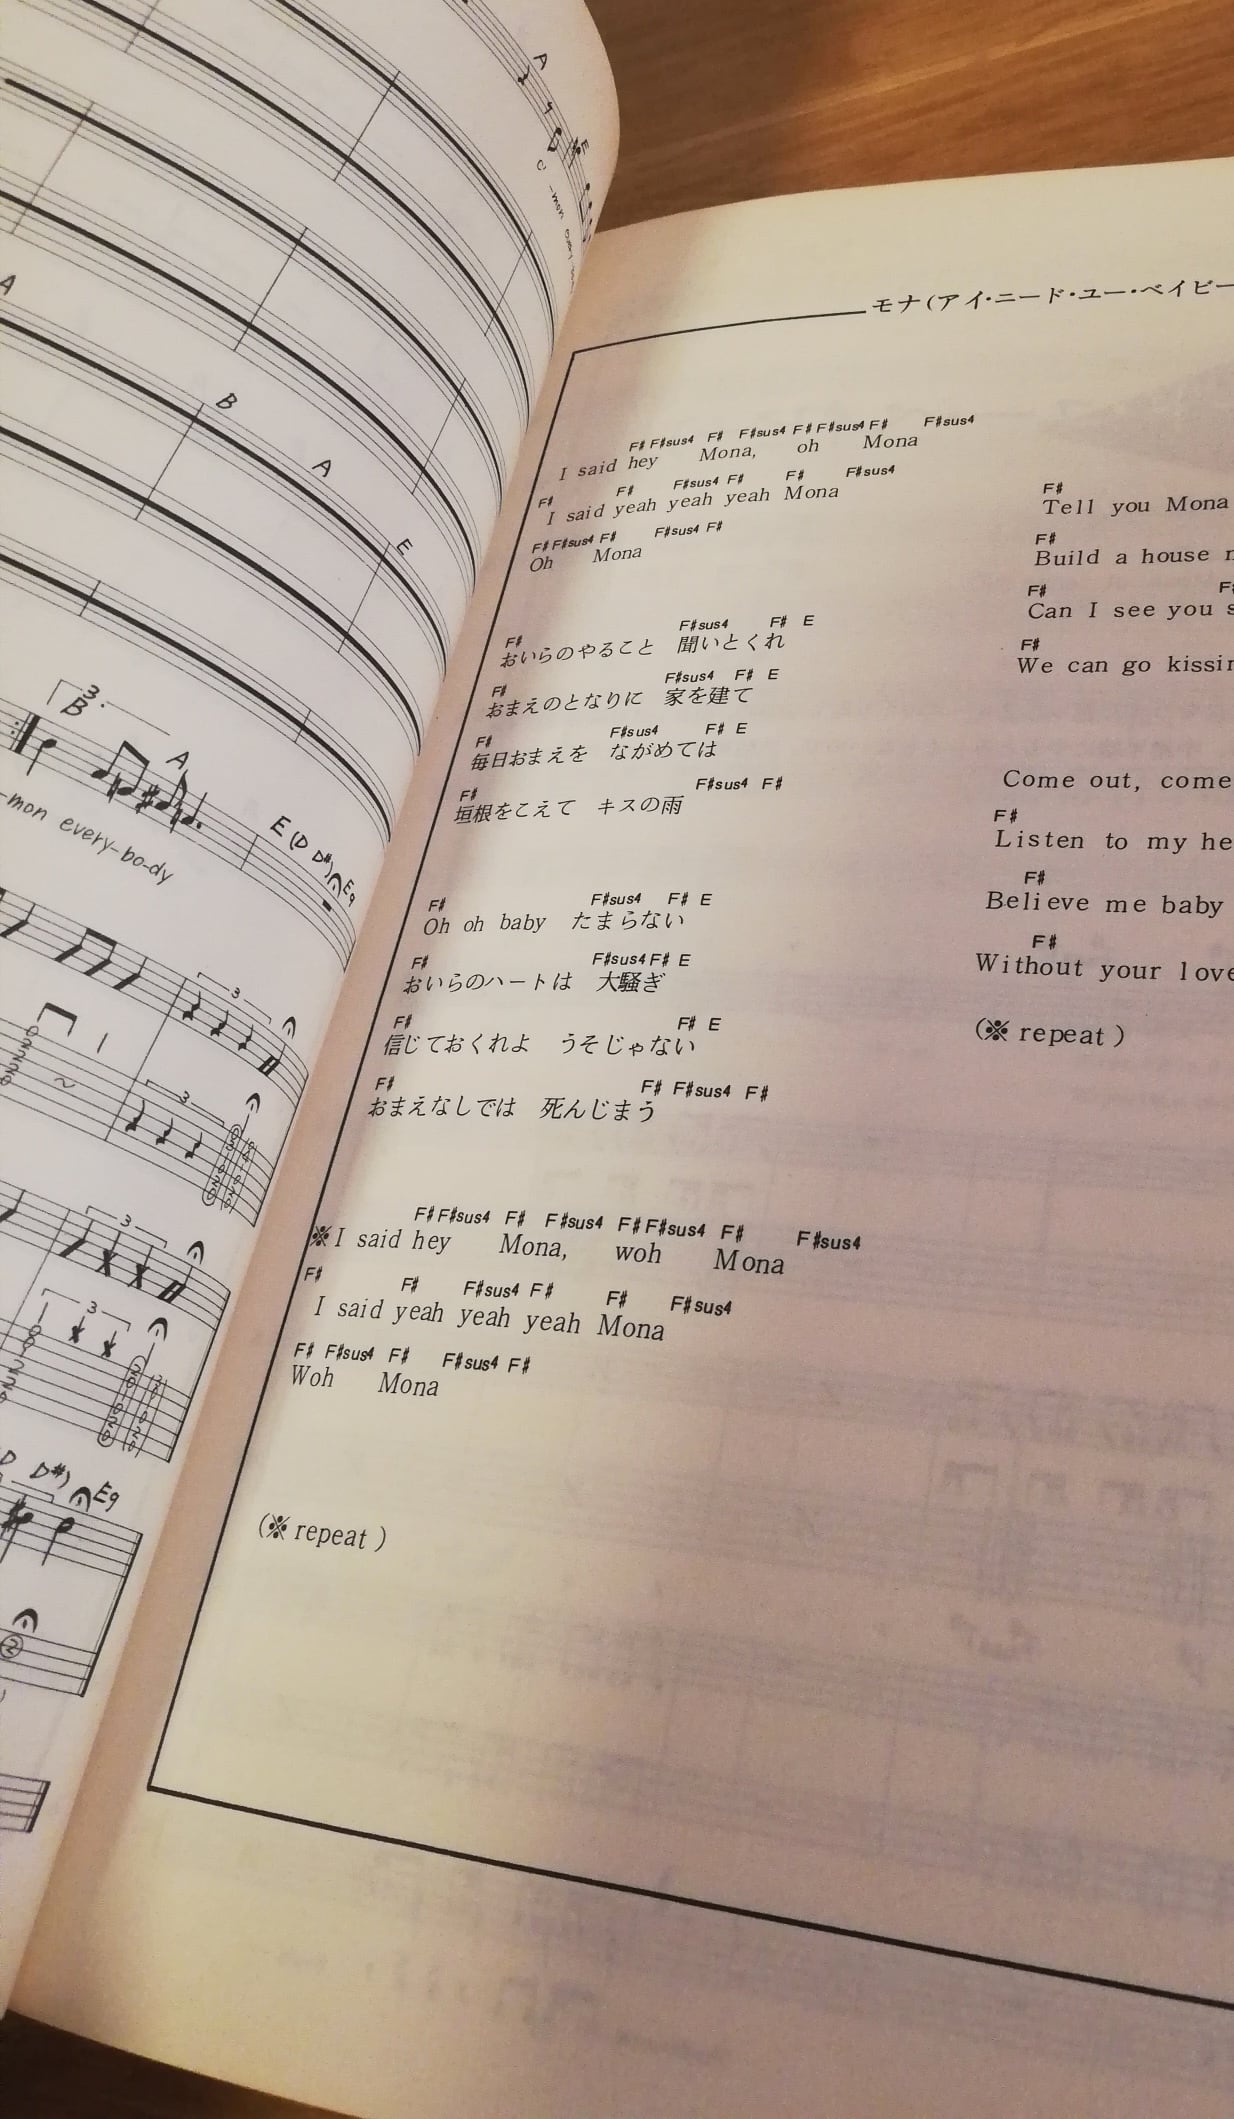 A
E
C -mon every
A
B
A
E
3
B
A
-mon every-bo-dy
E (D D#) E9
3
3
3
3
D D#) E9
モナ(アイ・ニード・ユー・ベイビー
F# F#sus4 F# F#sus4 F# F#sus4 F# F#sus4
I said hey Mona, oh Mona
F# F# F#sus4 F# F# F#sus4
I said yeah yeah yeah Mona
F# F#sus4 F# F#sus4 F#
Oh Mona
F# F#sus4 F# E
おいらのやること 聞いとくれ
F# F#sus4 F# E
おまえのとなりに 家を建て
F# F#sus4 F# E
毎日おまえを ながめては
F# F#sus4 F#
垣根をこえて キスの雨
F# F#sus4 F# E
Oh oh baby たまらない
F# F#sus4 F# E
おいらのハートは 大騒ぎ
F# F# E
信じておくれよ うそじゃない
F# F# F#sus4 F#
おまえなしでは 死んじまう
F# F#sus4 F# F#sus4 F# F#sus4 F# F#sus4
※I said hey Mona, woh Mona
F# F# F#sus4 F# F# F#sus4
I said yeah yeah yeah Mona
F# F#sus4 F# F#sus4 F#
Woh Mona
(※ repeat )
F#
Tell you Mona
F#
Build a house
F#
Can I see you
F#
We can go
Come out, come
F#
Listen to my
F#
Believe me baby
F#
Without your love
(※ repeat )